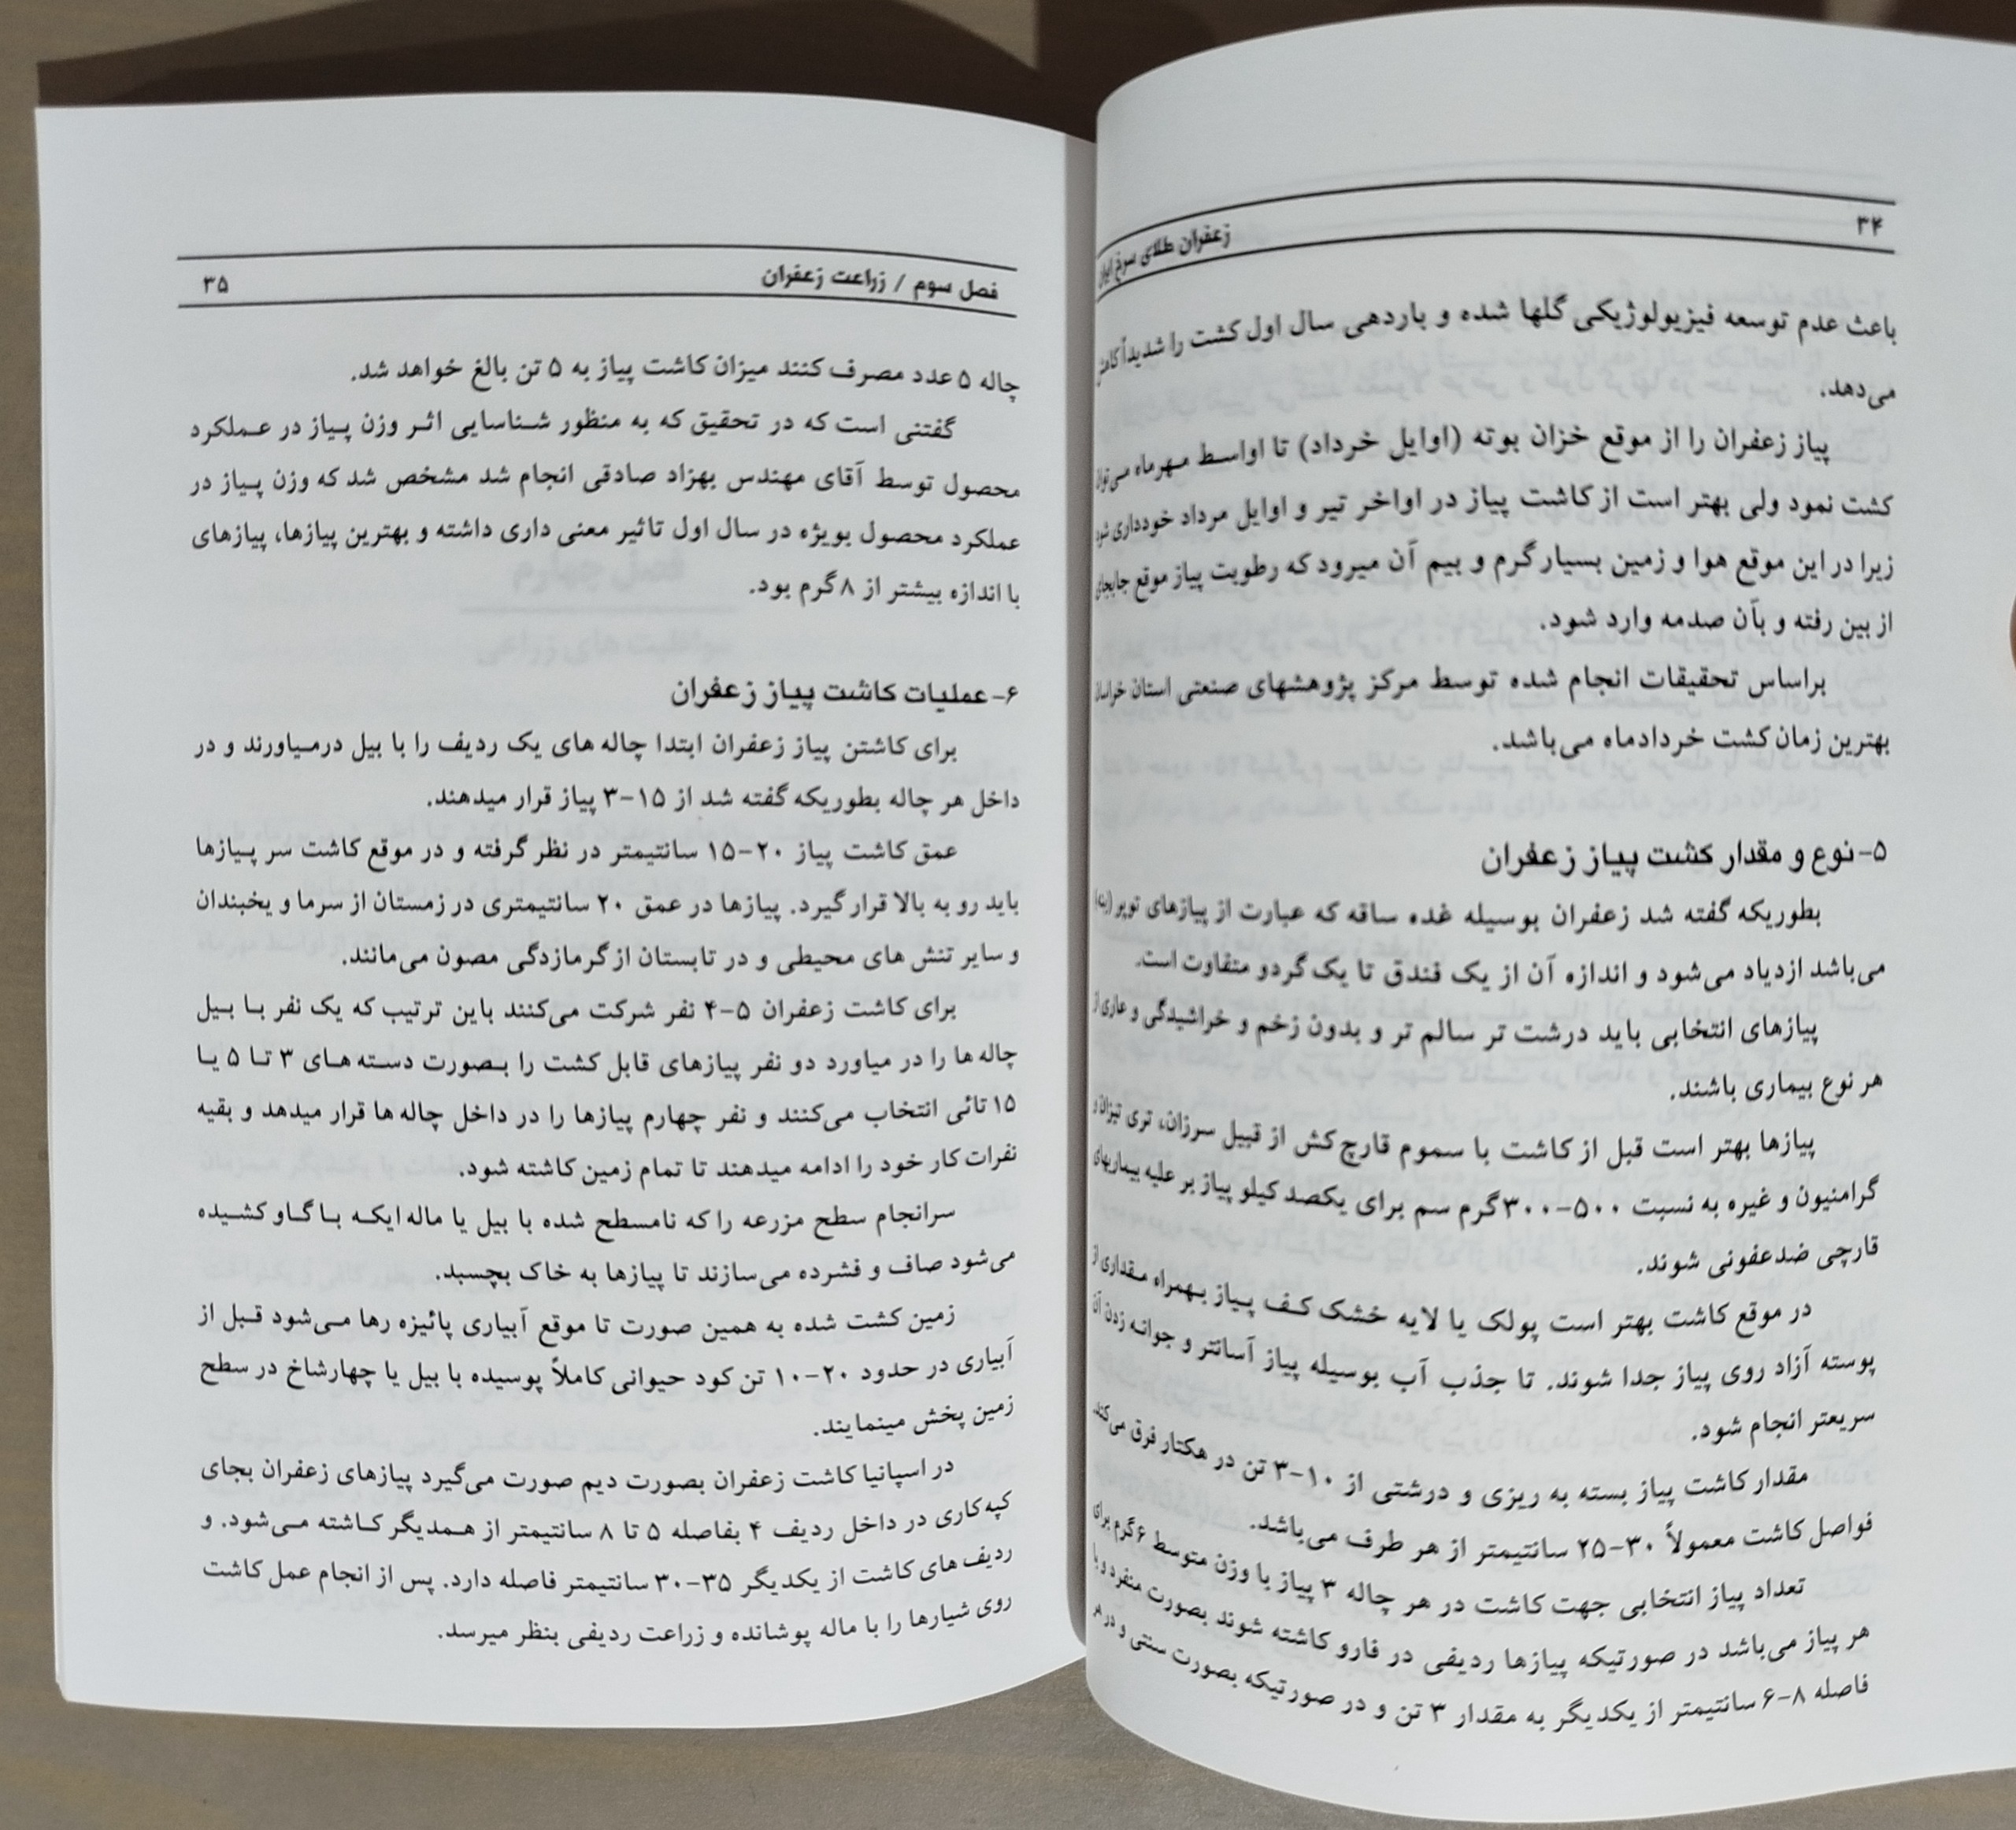 ۳۴
زعفران طلای سرخ ایران
باعث عدم توسعه فیزیولوژیکی گلها شده و باردهی سال اول کشت را شدیداً کاهش
می‌دهد.
پیاز زعفران را از موقع خزان بوته (اوایل خرداد) تا اواسط مهرماه می‌توان
کشت نمود ولی بهتر است از کاشت پیاز در اواخر تیر و اوایل مرداد خودداری شود
زیرا در این موقع هوا و زمین بسیار گرم و بیم آن میرود که رطوبت پیاز موقع جابجای
از بین رفته و بآن صدمه وارد شود.
براساس تحقیقات انجام شده توسط مرکز پژوهشهای صنعتی استان خراسان
بهترین زمان کشت خردادماه می‌باشد.
۵- نوع و مقدار کشت پیاز زعفران
بطوریکه گفته شد زعفران بوسیله غده ساقه که عبارت از پیازهای توپر
می‌باشد ازدیاد می‌شود و اندازه آن از یک فندق تا یک گردو متفاوت است.
پیازهای انتخابی باید درشت تر سالم تر و بدون زخم و خراشیدگی و عاری از
هر نوع بیماری باشند.
پیازها بهتر است قبل از کاشت با سموم قارچ کش از قبیل سرزان، تری تیزان و
گرامنیون و غیره به نسبت ۵۰۰-۳۰۰ گرم سم برای یکصد کیلو پیاز بر علیه بیماریهای
قارچی ضدعفونی شوند.
در موقع کاشت بهتر است پولک یا لایه خشک کف پیاز بهمراه مقداری از
پوسته آزاد روی پیاز جدا شوند. تا جذب آب بوسیله پیاز آسانتر و جوانه زدن آن
سریعتر انجام شود.
مقدار کاشت پیاز بسته به ریزی و درشتی از ۱۰-۳ تن در هکتار فرق می‌کند
فواصل کاشت معمولاً ۳۰-۲۵ سانتیمتر از هر طرف می‌باشد.
تعداد پیاز انتخابی جهت کاشت در هر چاله ۳ پیاز با وزن متوسط ۶ گرم برای
هر پیاز می‌باشد در صورتیکه پیازها ردیفی در فارو کاشته شوند بصورت منفرد و با
فاصله ۸-۶ سانتیمتر از یکدیگر به مقدار ۳ تن و در صورتیکه بصورت سنتی و در هر
فصل سوم / زراعت زعفران
۳۵
چاله ۵ عدد مصرف کنند میزان کاشت پیاز به ۵ تن بالغ خواهد شد.
گفتنی است که در تحقیق که به منظور شناسایی اثر وزن پیاز در عملکرد
محصول توسط آقای مهندس بهزاد صادقی انجام شد مشخص شد که وزن پیاز در
عملکرد محصول بویژه در سال اول تاثیر معنی داری داشته و بهترین پیازها، پیازهای
با اندازه بیشتر از ۸ گرم بود.
۶- عملیات کاشت پیاز زعفران
برای کاشتن پیاز زعفران ابتدا چاله های یک ردیف را با بیل درمیاورند و در
داخل هر چاله بطوریکه گفته شد از ۱۵-۳ پیاز قرار میدهند.
عمق کاشت پیاز ۲۰-۱۵ سانتیمتر در نظر گرفته و در موقع کاشت سر پیازها
باید رو به بالا قرار گیرد. پیازها در عمق ۲۰ سانتیمتری در زمستان از سرما و یخبندان
و سایر تنش های محیطی و در تابستان از گرمازدگی مصون می‌مانند.
برای کاشت زعفران ۵-۴ نفر شرکت می‌کنند باین ترتیب که یک نفر با بیل
چاله ها را در میاورد دو نفر پیازهای قابل کشت را بصورت دسته های ۳ تا ۵ یا
۱۵ تائی انتخاب می‌کنند و نفر چهارم پیازها را در داخل چاله ها قرار میدهد و بقیه
نفرات کار خود را ادامه میدهند تا تمام زمین کاشته شود.
سرانجام سطح مزرعه را که نامسطح شده با بیل یا ماله ایکه با گاو کشیده
می‌شود صاف و فشرده می‌سازند تا پیازها به خاک بچسبد.
زمین کشت شده به همین صورت تا موقع آبیاری پائیزه رها می‌شود قبل از
آبیاری در حدود ۲۰-۱۰ تن کود حیوانی کاملاً پوسیده با بیل یا چهارشاخ در سطح
زمین پخش مینمایند.
در اسپانیا کاشت زعفران بصورت دیم صورت می‌گیرد پیازهای زعفران بجای
کپه کاری در داخل ردیف ۴ بفاصله ۵ تا ۸ سانتیمتر از همدیگر کاشته می‌شود. و
ردیف های کاشت از یکدیگر ۳۵-۳۰ سانتیمتر فاصله دارد. پس از انجام عمل کاشت
روی شیارها را با ماله پوشانده و زراعت ردیفی بنظر میرسد.